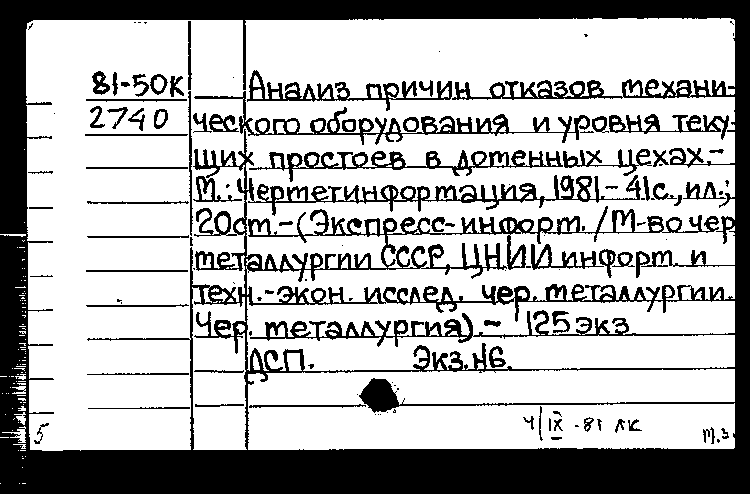 81-50К Анализ причин отказов механи-
2740 ческого оборудования и уровня теку-
щих простоев в доменных цехах.-
М.: Черметинформация, 1981.- 41с., ил.;
20см.-(Экспресс-информ. / М-во чер
металлургии СССР, ЦНИИ информ. и
техн.-экон. исслед. чер. металлургии.
Чер. металлургия).- 125 экз
ДСП. Экз.№6.
4/IX -81 ЛК
5 т.з.